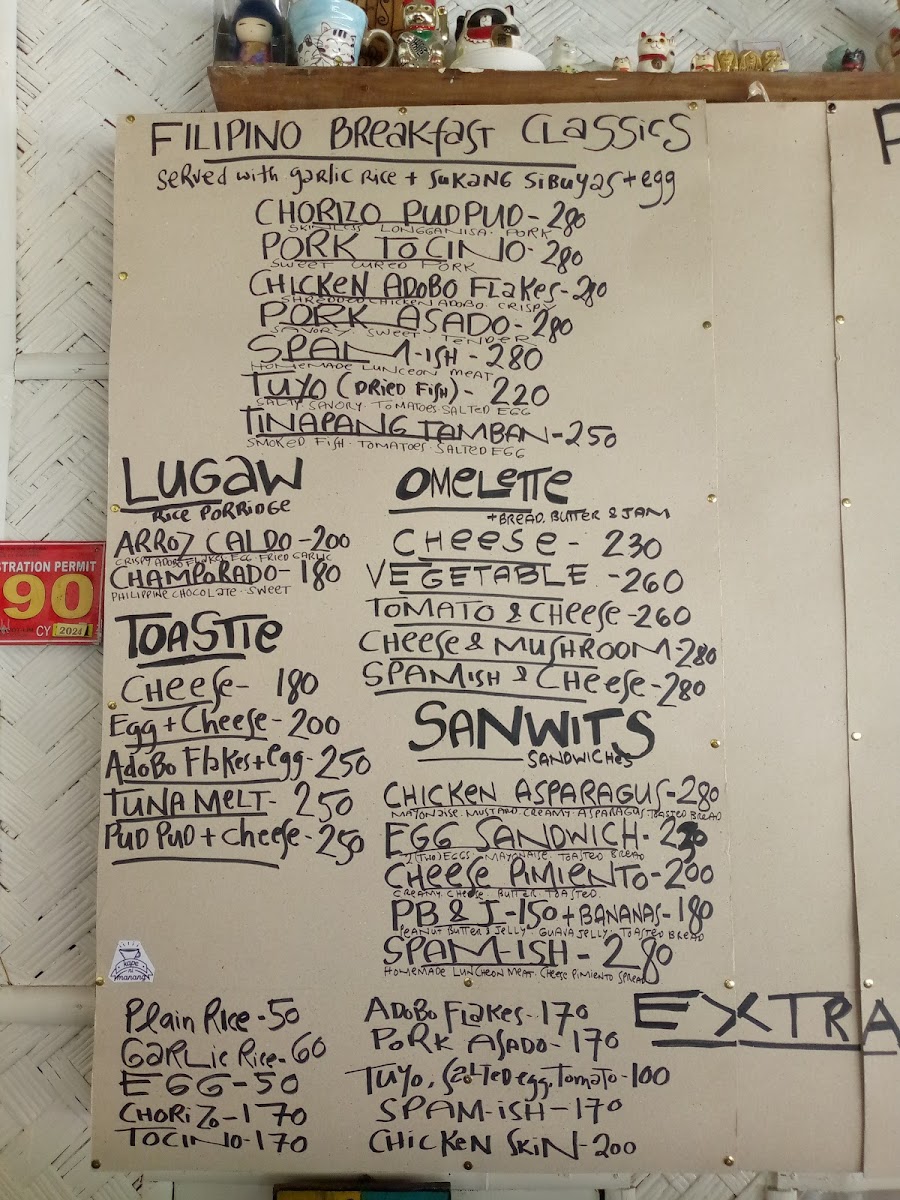 FILIPINO BREAKFAST CLASSICS
SERVED WITH GARLIC RICE + SUKANG SIBUYAS + EGG
CHORIZO PUDPUD - 280
SKINLESS LONGGANISA. PORK
PORK TOCINO - 280
SWEET CURED PORK
CHICKEN ADOBO FLAKES - 280
SHREDDED CHICKEN ADOBO. CRISPY
PORK ASADO - 280
SAVORY. SWEET. TENDER
SPAM-ISH - 280
HOMEMADE LUNCEON MEAT
TUYO (DRIED FISH) - 220
SALTY. SAVORY. TOMATOES. SALTED EGG
TINAPANG TAMBAN - 250
SMOKED FISH. TOMATOES. SALTED EGG
LUGAW
RICE PORRIDGE
ARROZ CALDO - 200
CRISPY ADOBO FLAKES. EGG. FRIED GARLIC
CHAMPORADO - 180
PHILIPPINE CHOCOLATE. SWEET
TOASTIE
CHEESE - 180
EGG + CHEESE - 200
ADOBO FLAKES + EGG - 250
TUNA MELT - 250
PUD PUD + CHEESE - 250
OMELETTE
+ BREAD, BUTTER & JAM
CHEESE - 230
VEGETABLE - 260
TOMATO & CHEESE - 260
CHEESE & MUSHROOM - 280
SPAMISH & CHEESE - 280
SANWITS
SANDWICHES
CHICKEN ASPARAGUS - 280
MAYONAISE. MUSTARD. CREAMY. ASPARAGUS. TOASTED BREAD
EGG SANDWICH -
2 (TWO) EGGS. MAYONAISE. TOASTED BREAD
CHEESE PIMIENTO - 200
CREAMY. CHEESE. BUTTER. TOASTED
PB & J - 150 + BANANAS - 180
PEANUT BUTTER & JELLY. GUAVA JELLY. TOASTED BREAD
SPAM-ISH - 280
HOMEMADE LUNCHEON MEAT. CHEESE PIMIENTO SPREAD
kape ni manang
EXTRA
PLAIN RICE - 50
GARLIC RICE - 60
EGG - 50
CHORIZO - 170
TOCINO - 170
ADOBO FLAKES - 170
PORK ASADO - 170
TUYO, SALTED EGG, TOMATO - 100
SPAM-ISH - 170
CHICKEN SKIN - 200
STRATION PERMIT
90
CY 2024
P